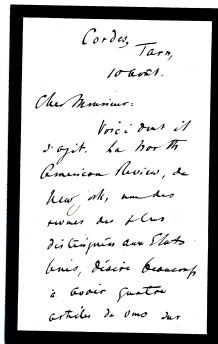 Cordes,
Tarn,
10 août.
Cher Monsieur:
Voici dont il
s'agit. La North
American Review, de
New York, une des
revues des plus
distinguées aux Etats
Unis, désire beaucoup
à avoir quatre
articles de vous sur